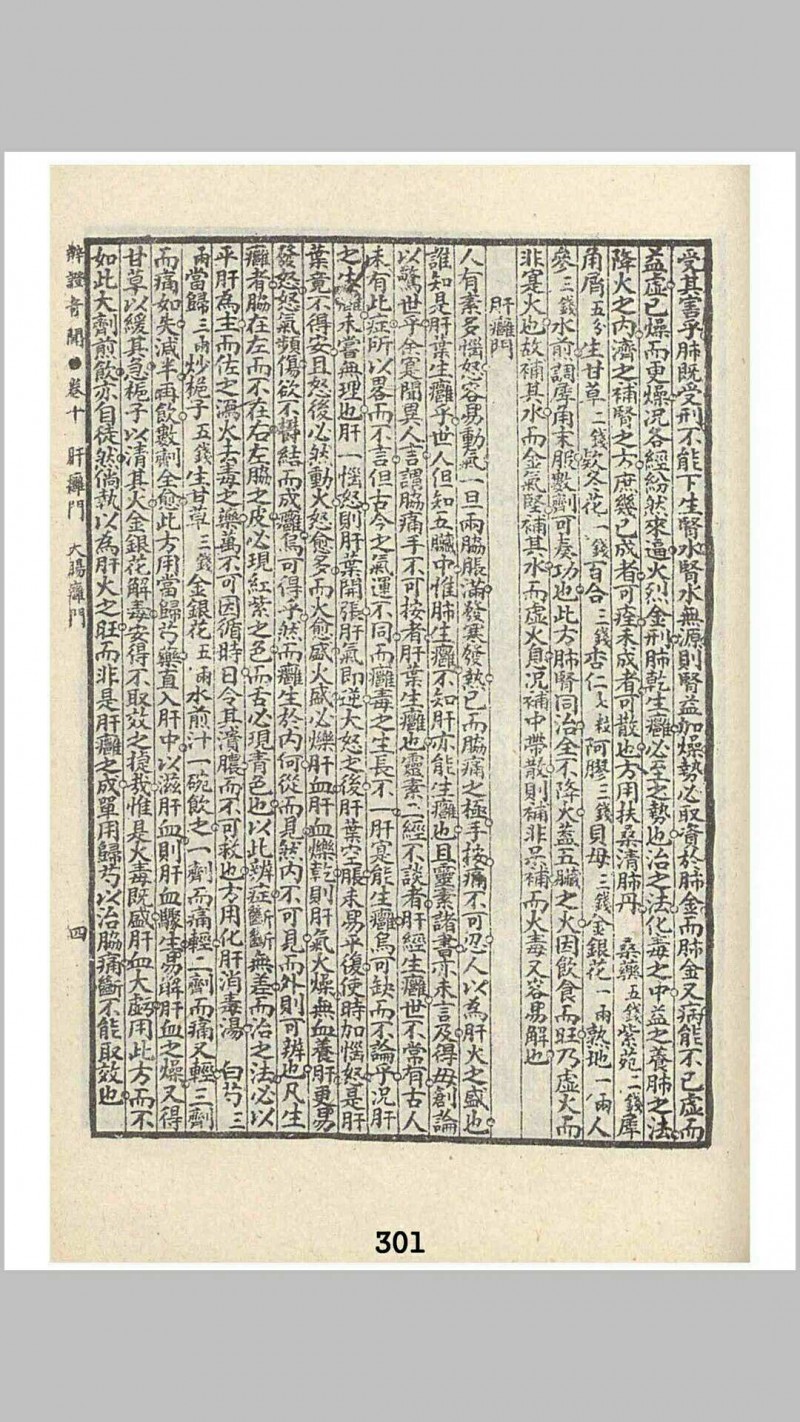 受其害乎肺既受刑不能下生腎水腎水無源則腎益加燥勢必取資於肺金而肺金又病能不已虛而
益虛已燥而更燥况各經紛然來逼火烈金刑肺乾生癰必至之勢也治之法化毒之中益之養肺之法
降火之内濟之補腎之方庶幾已成者可痊未成者可散也方用扶桑清肺丹 桑藥五錢紫苑二錢犀
角屑五分生甘草二錢欵冬花一錢百合三錢杏仁七粒阿膠三錢貝母三錢金銀花一兩熟地一兩人
參三錢水煎調犀角末服數劑可奏功也此方肺腎同治全不降火蓋五臟之火因飲食而旺乃虛火而
非寔火也故補其水而金氣堅補其水而虛火息况補中帶散則補非呆補而火毒又容易解也
肝癰門
人有素多惱怒容易動氣一旦兩脇脹滿發寒發熱已而脇痛之極手按痛不可忍人以為肝火之盛也
誰知是肝葉生癰乎世人但知五臟中惟肺生癰不知肝亦能生癰也且靈素諸書亦未言及得毋創論
以驚世乎余寔聞異人言謂脇痛手不可按者肝葉生癰也靈素二經不談者肝經生癰世不常有古人
未有此症所以畧而不言但古今之氣運不同而癰毒之生長不一肝寔能生癰烏可缺而不論乎况肝
之生癰未嘗無理也肝一惱怒則肝葉開張肝氣即逆大怒之後肝葉空脹未易平復使時加惱怒是肝
葉竟不得安且怒後必然動火怒愈多而火愈盛火盛必爍肝血肝血爍乾則肝氣火燥無血養肝更易
發怒怒氣頻傷欲不欝結而成癰烏可得乎然而癰生於内何從而見然内不可見而外則可辨也凡生
癰者脇在左而不在右左脇之皮必現紅紫之色而舌必現青色也以此辨症斷斷無差而治之法必以
平肝為主而佐之瀉火去毒之藥萬不可因循時日令其潰膿而不可救也方用化肝消毒湯 白芍三
兩當歸三兩炒梔子五錢生甘草三錢金銀花五兩水煎汁一碗飲之一劑而痛輕二劑而痛又輕三劑
而痛如失減半再飲數劑全愈此方用當歸芍藥直入肝中以滋肝血則肝血驟生易解肝血之燥又得
甘草以緩其急梔子以清其火金銀花解毒安得不取效之捷哉惟是火毒既盛肝血大虧用此方而不
如此大劑煎飲亦自徒然倘執以為肝火之旺而非是肝癰之成單用歸芍以治脇痛斷不能取效也
辨證奇聞●卷十 肝癰門 大腸癰門 四
301